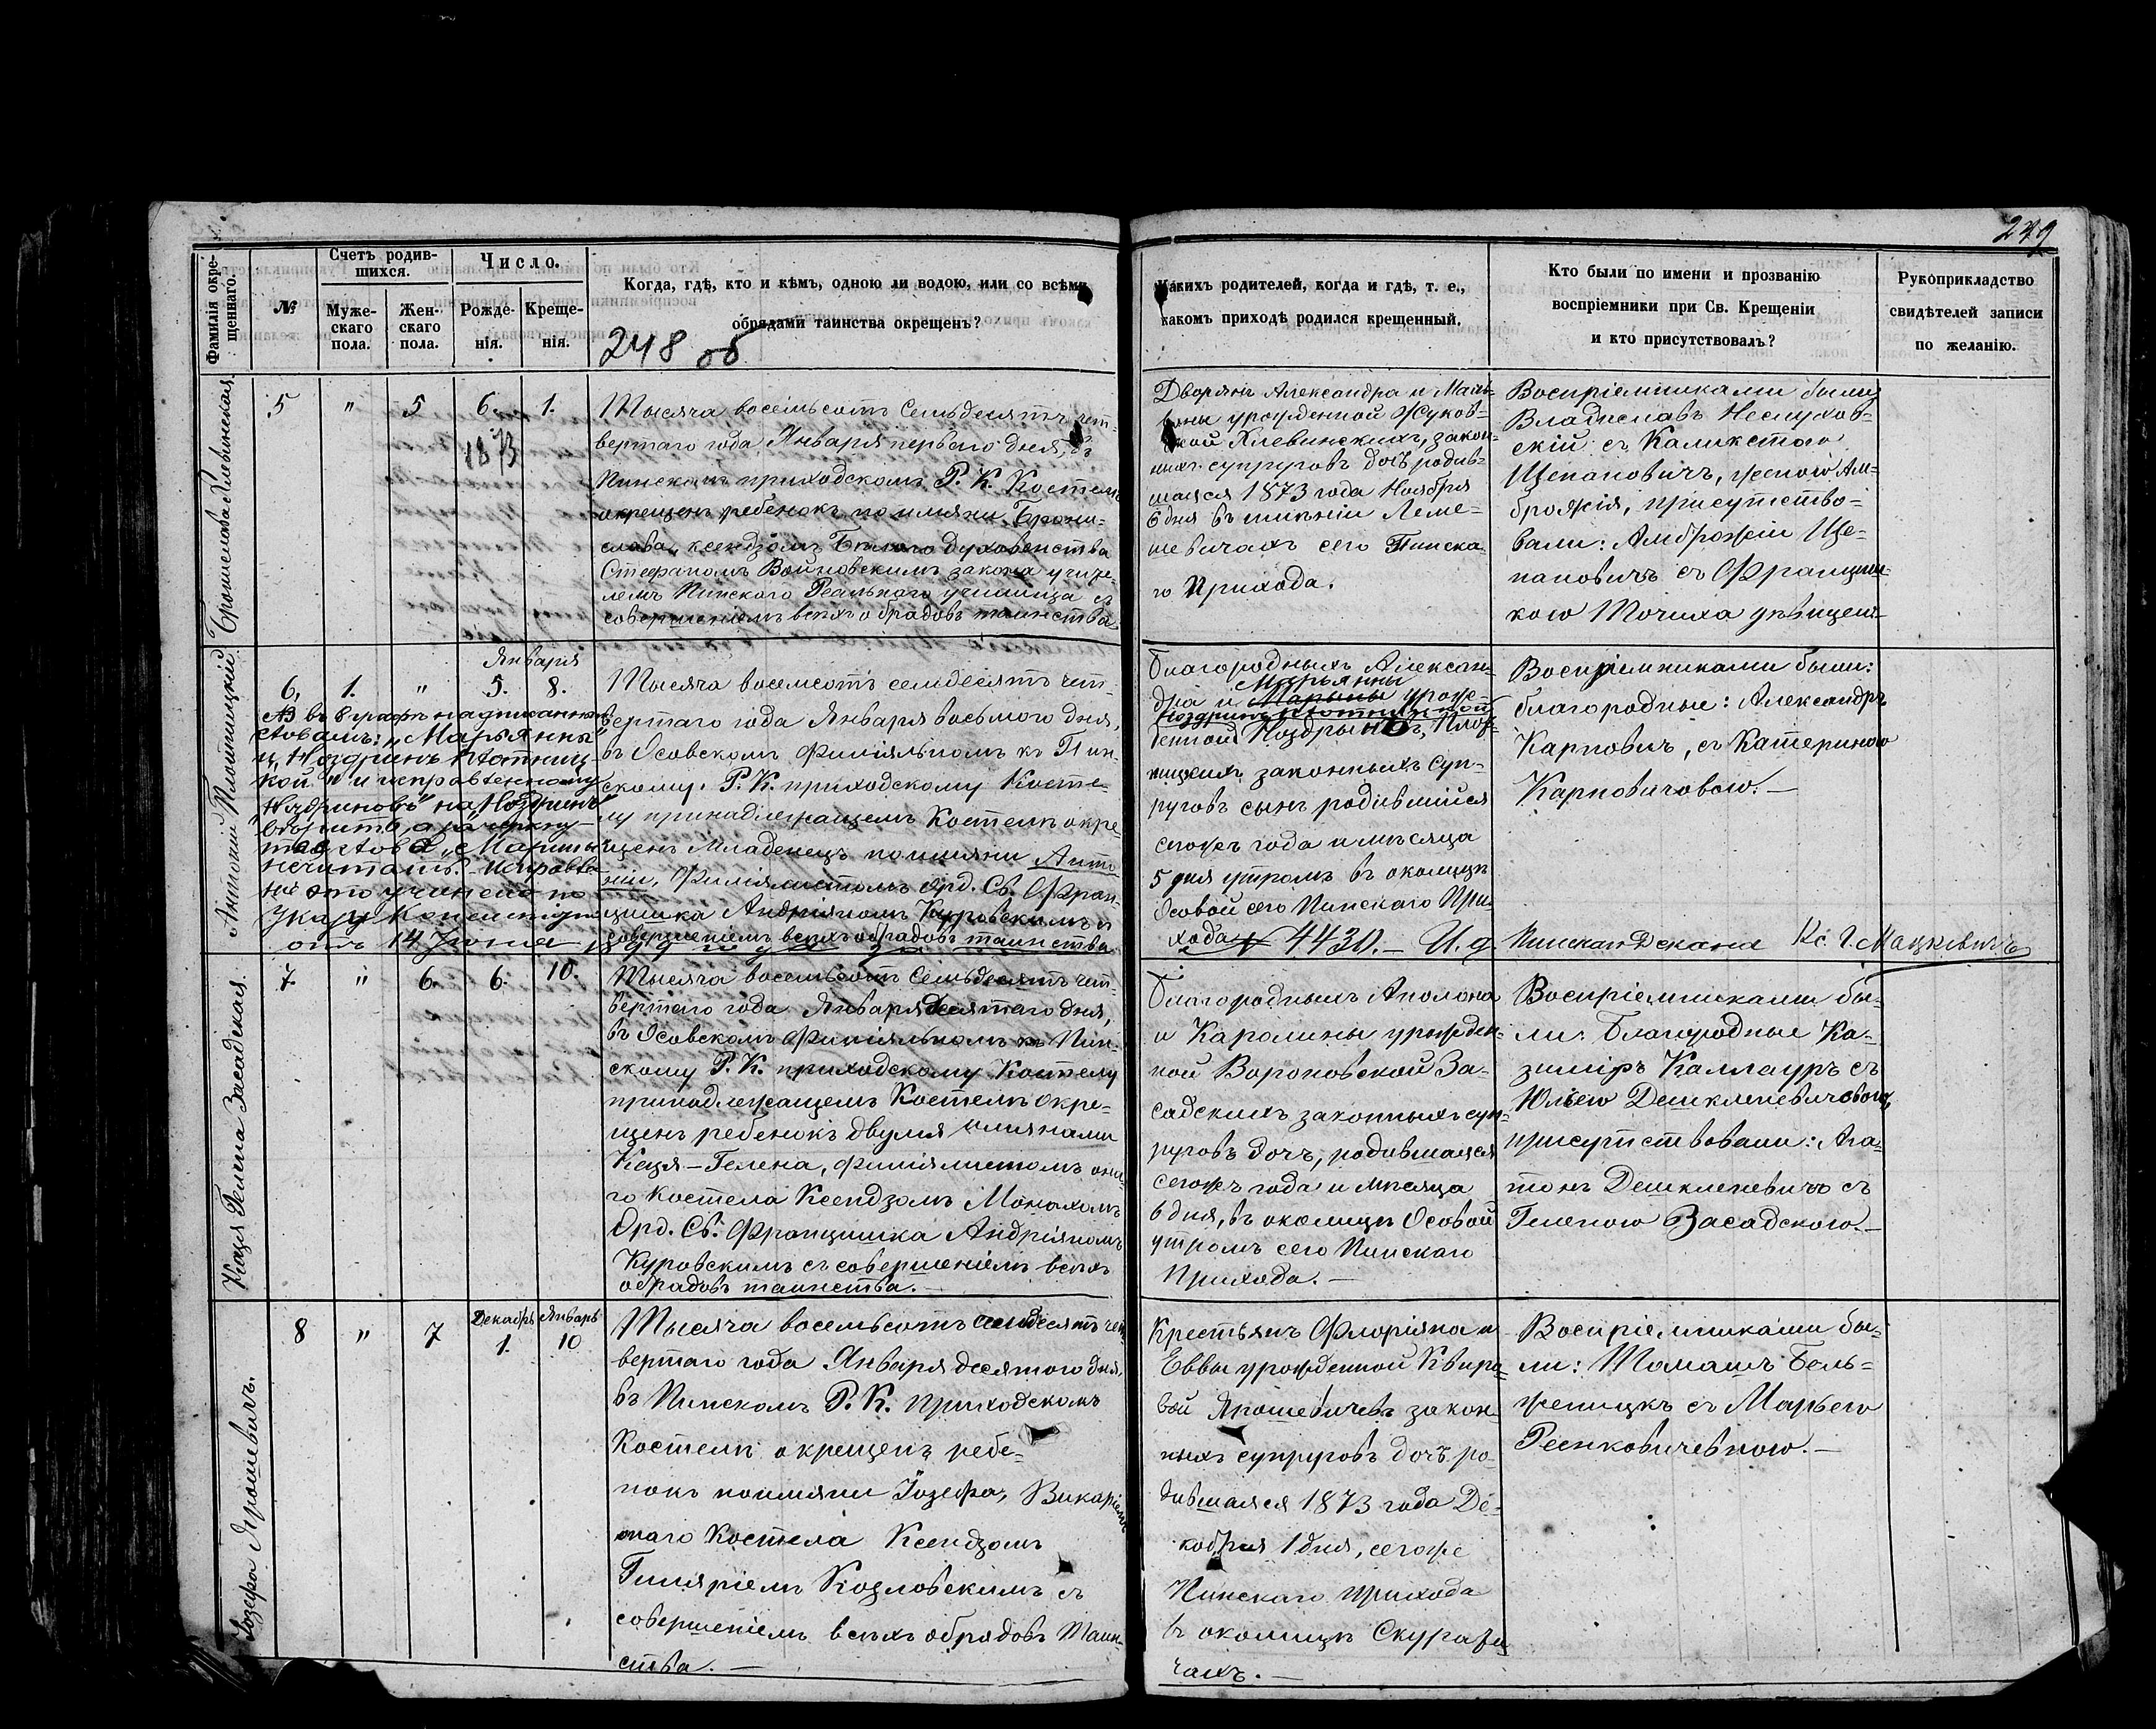 279
Фамилія окре-
щеннаго.
№
Счетъ родив-
шихся.
Муже-
скаго
пола.
Жен-
скаго
пола.
Число.
Рожде-
нія.
Креще-
нія.
Когда, гдѣ, кто и кѣмъ, одною ли водою, или со всѣми
обрядами таинства окрещенъ?
248 об
Какихъ родителей, когда и гдѣ, т. е.,
какомъ приходѣ родился крещенный.
Кто были по имени и прозванію
воспріемники при Св. Крещеніи
и кто присутствовалъ?
Рукоприкладство
свидѣтелей записи
по желанію.
Бронислава Хлевинская.
5 " 5 6. 1.
1873
Тысяча восемьсотъ семьдесятъ чет-
вертаго года Января перваго дня, въ
Пинскомъ приходскомъ Р. К. Костелѣ
окрещенъ ребенокъ по имяни Брони-
слава, ксендзомъ Бѣлого духовенства
Стефаномъ Войновскимъ закона учите-
лемъ Пинского Реального училища съ
совершеніемъ всѣхъ обрядовъ таинства
Дворянъ Александра и Маль-
вины урожденной Жуков-
ской Хлевинскихъ, закон-
ныхъ супруговъ дочь родив-
шаяся 1873 года Ноября
6 дня въ имѣніи Леме-
шевичахъ сего Пинска-
го Прихода.
Воспріемниками были
Владиславъ Неслухов-
скій съ Каликстою
Щепановичъ, женою Ам-
брожія, присутство-
вали: Амброжій Ще-
пановичъ съ Францiш-
кою Точиха дѣвицею
Антоній Плотницкій
Января
6, 1. " 5. 8.
Аз въ 8 графѣ надписаннымъ
словамъ: „Марьянны"
и „Ноздринъ Плотниц-
кой" и исправленному
на „Ноздринъ"
вѣрить, а зачеркну-
тое слово „Марины
нечитать. Исправле-
ніе это учинено по
Указу Консисторіи
отъ 14 Іюня
Тысяча восемсотъ семдесятъ чет-
вертаго года Января восьмого дня,
въ Осовскомъ филіяльномъ къ Пин-
скому Р. К. приходскому Косте-
лу принадлежащемъ Костелѣ окре-
щенъ Младенецъ по имяни Анто-
ній, Филіялистомъ Орд. Св. Фран-
цишка Андріяномъ Куровскимъ съ
совершеніемъ всѣхъ обрядовъ таинства
Благородныхъ Алексан-
дра и Марины уроже-
Марьянны
нной Ноздриновъ, Плот-
ницкихъ законныхъ суп-
руговъ сынъ родившійся
сегожъ года и мѣсяца
5 дня утромъ въ околицѣ
Осовой сего Пинскаго При-
хода № 4430. — И. д. Пинскаго Декана Кс. І. Мацкевичъ
Воспріемниками были:
благородные: Александръ
Карповичъ, съ Катериною
Карповичовою. —
Кацпя Гелена Засадская.
7. " 6. 6. 10.
Тысяча восемьсотъ семьдесятъ чет-
вертаго года Января десятаго дня,
въ Осовскомъ Филіяльномъ къ Пин-
скому Р. К. приходскому Костелу
принадлежащемъ Костелѣ окре-
щенъ ребенокъ двумя имянами
Кацпя - Гелена, филіялистомъ она-
го Костела Ксендзомъ Монахомъ
Орд. Св. Францишка Андріяномъ
Куровскимъ съ совершеніемъ всѣхъ
обрядовъ таинства. —
Благородныхъ Аполона
и Каролины урожден-
ной Вороновской За-
садскихъ законныхъ суп-
руговъ дочъ, родившаяся
сегожъ года и мѣсяца
6 дня, въ околицѣ Осовой
утромъ сего Пинскаго
Прихода. —
Воспріемниками бы-
ли: Благородные Ка-
зиміръ Каллауръ съ
Юлiею Дешкленевичовою,
присутствовали: Ага-
тонъ Дешкленевичъ съ
Геленою Засадскою. —
Іозефа Ярошевичъ.
Декабрь Январь
8 " 7 1. 10
Тысяча восемьсотъ семдесятъ чет-
вертаго года Января десятого дня,
въ Пинскомъ Р. К. приходскомъ
Костелѣ окрещенъ ребе-
нокъ по имяни Іозефа, Викаріемъ
онаго Костела Ксендзомъ
Гиляріемъ Козловскимъ съ
совершеніемъ всѣхъ обрядовъ Таин-
ства. —
Крестьянъ Флоріяна и
Еввы урожденной Квира-
вой Ярошевичевъ закон-
ныхъ супруговъ дочъ ро-
дившаяся 1873 года Де-
кабря 1 дня, сегоже
Пинскаго прихода
въ околицѣ Скурати-
чахъ. —
Воспріемниками бы-
ли: Томашъ Боль-
женицкъ съ Марьею
Ренковичевною. —